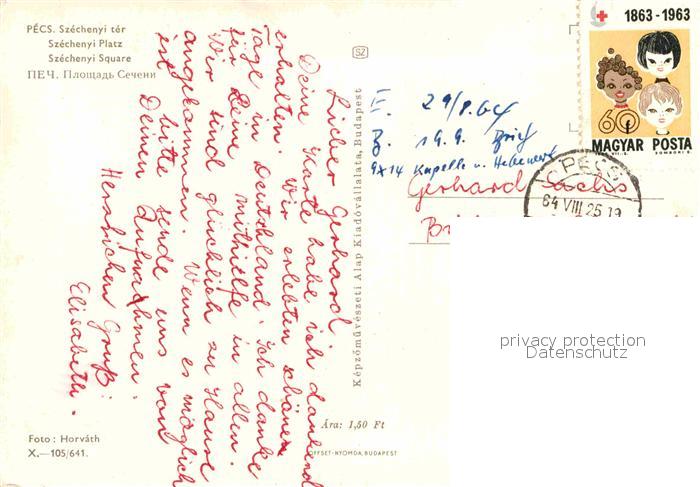 PÉCS. Széchenyi tér
Széchenyi Platz
Széchenyi Square
ПЕЧ. Площадь Сечени
Lieber Gerhard
Deine Karte habe ich dankend
erhalten. Wir erlebten schöne
Tage in Deutschland. Ich danke
für Deine mithielfe in allen.
Wir sind glücklich zu Hause
angekommen. Wenn es möglich
ist bitte sende uns von
Deinen Aufnahmen.
Herzlichen Gruß:
Elisabeth.
Foto: Horváth
X.—105/641.
SZ
Képzőművészeti Alap Kiadóvállalata, Budapest
Ára: 1,50 Ft
OFFSET-NYOMDA, BUDAPEST
1863-1963
60f
MAGYAR POSTA
PÉCS
64 VIII 25 19
E. 29/8.64
B. 19.9. Brief
9x14 Kapelle u.
Gerhard Sachs
privacy protection
Datenschutz